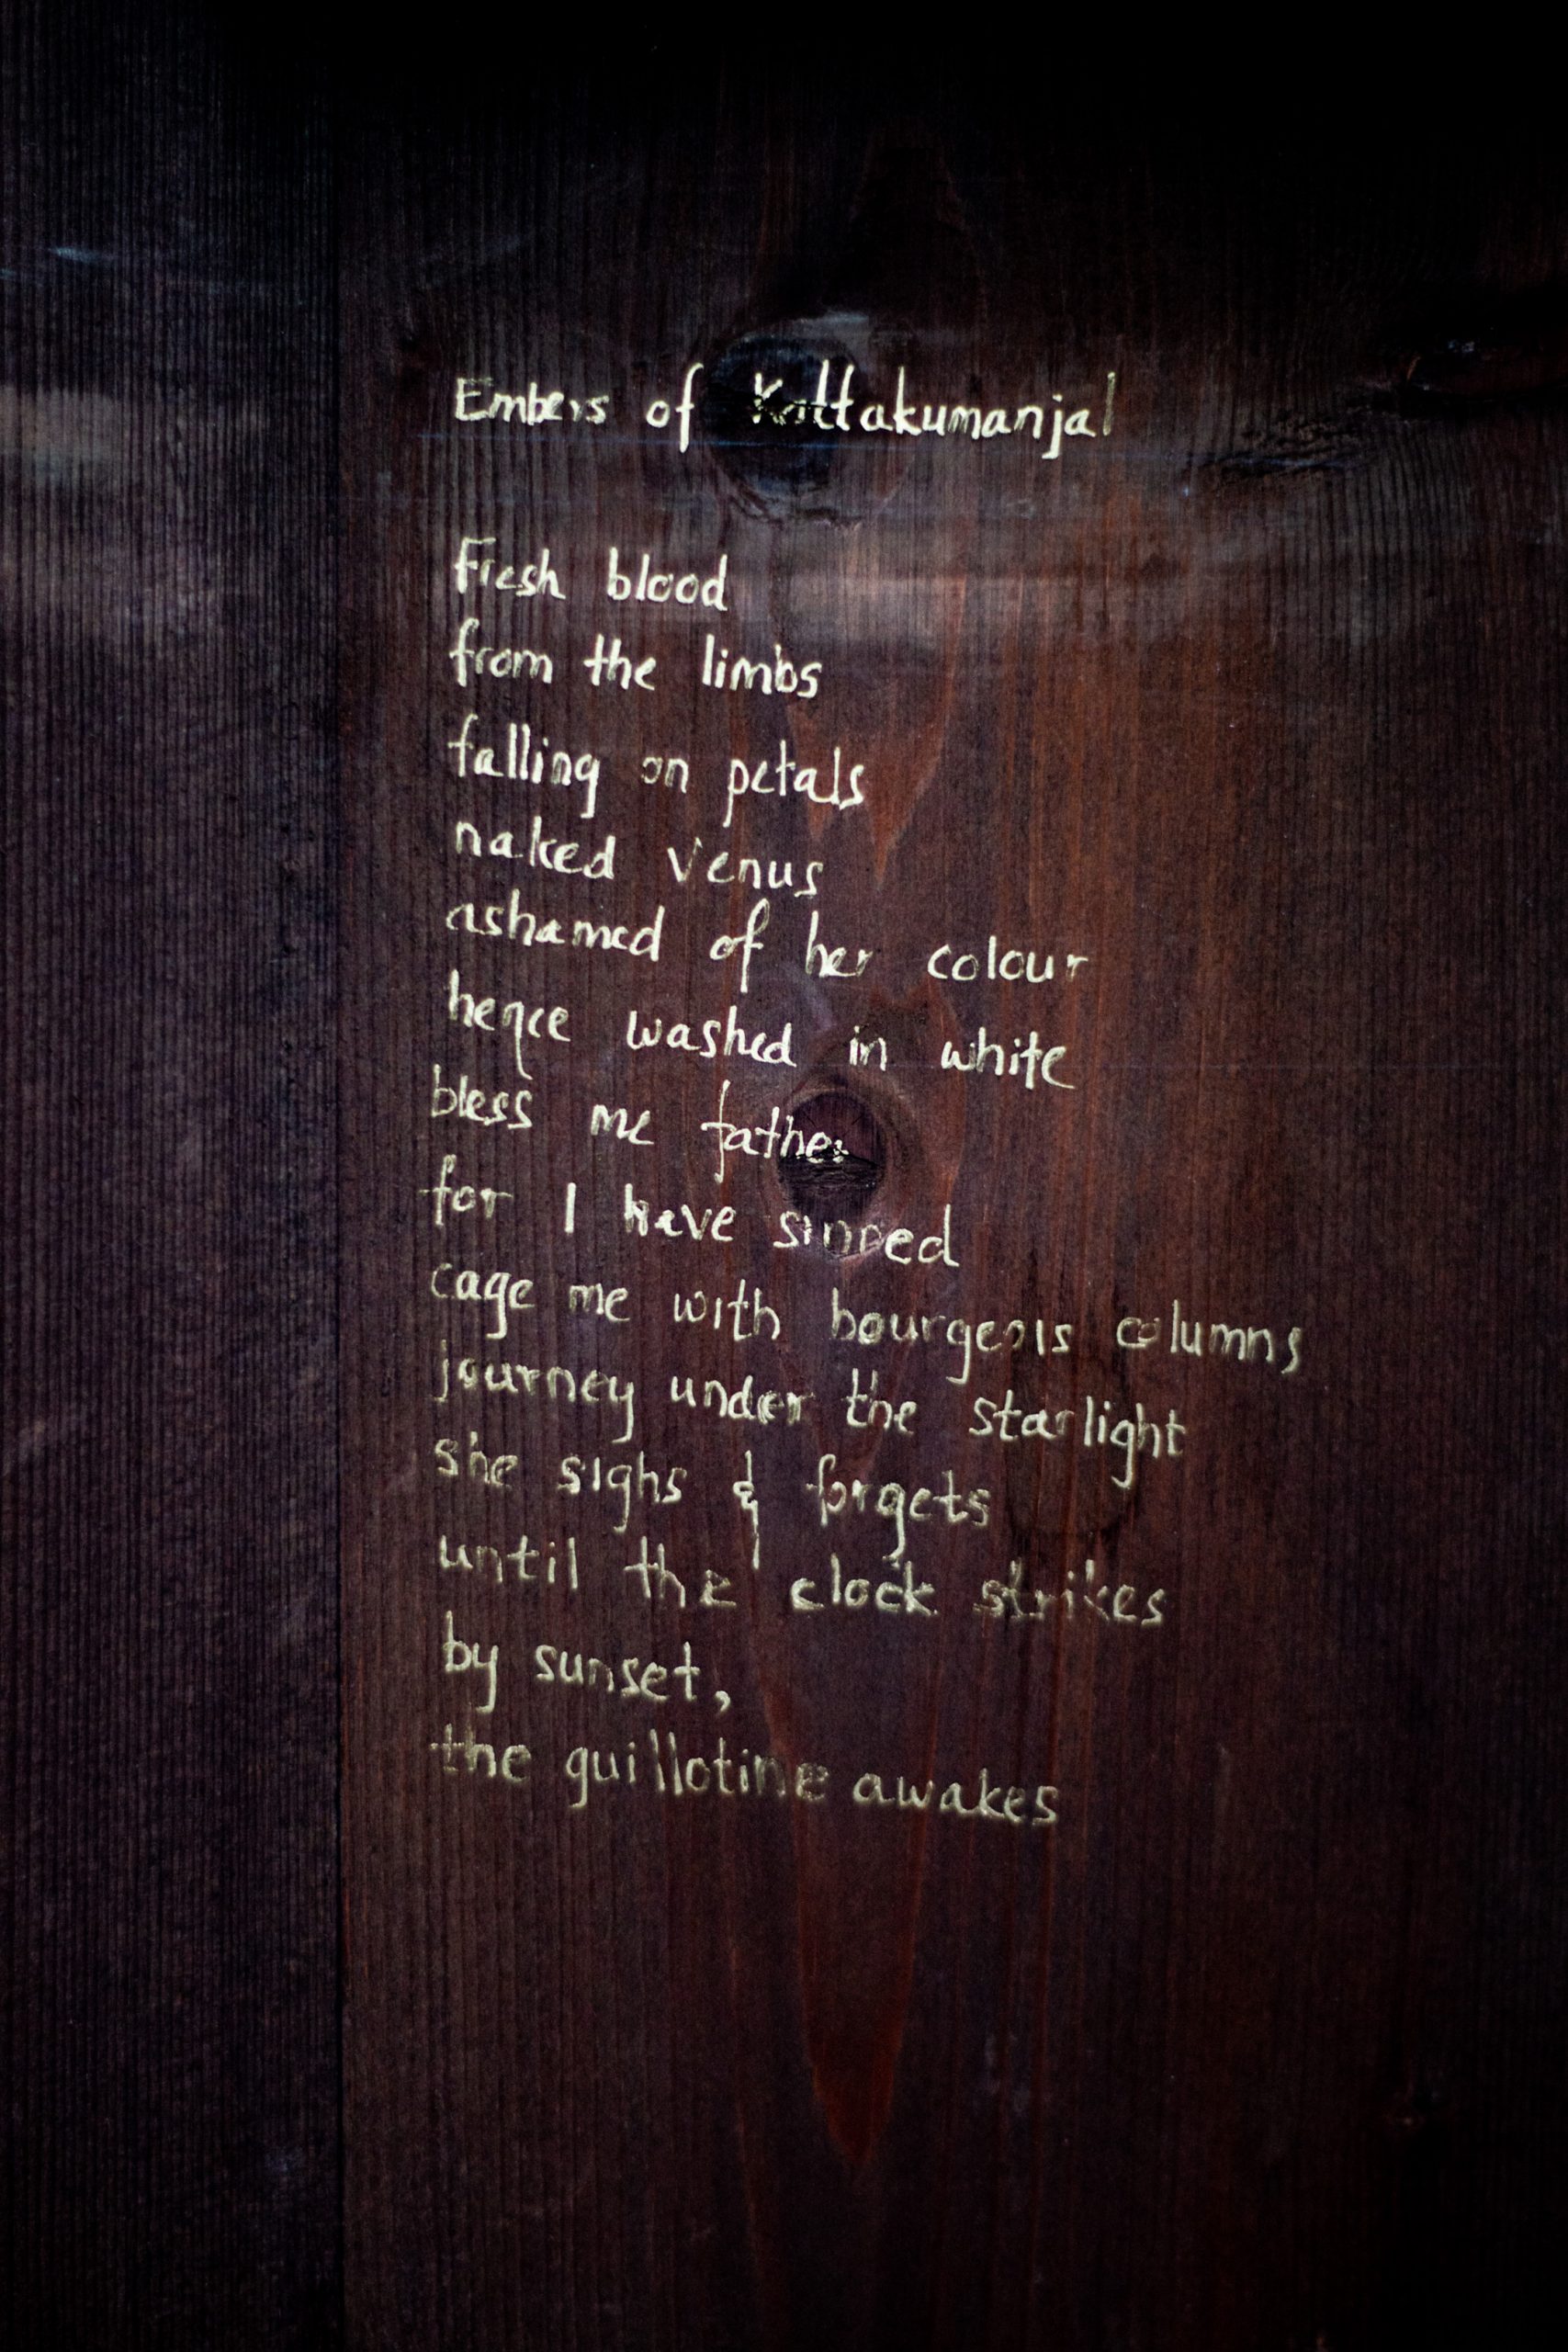 Embers of Kottakumanjal
Fresh blood
from the limbs
falling on petals
naked venus
ashamed of her colour
hence washed in white
bless me father
for I have sinned
cage me with bourgeois columns
journey under the starlight
she sighs & forgets
until the clock strikes
by sunset,
the guillotine awakes